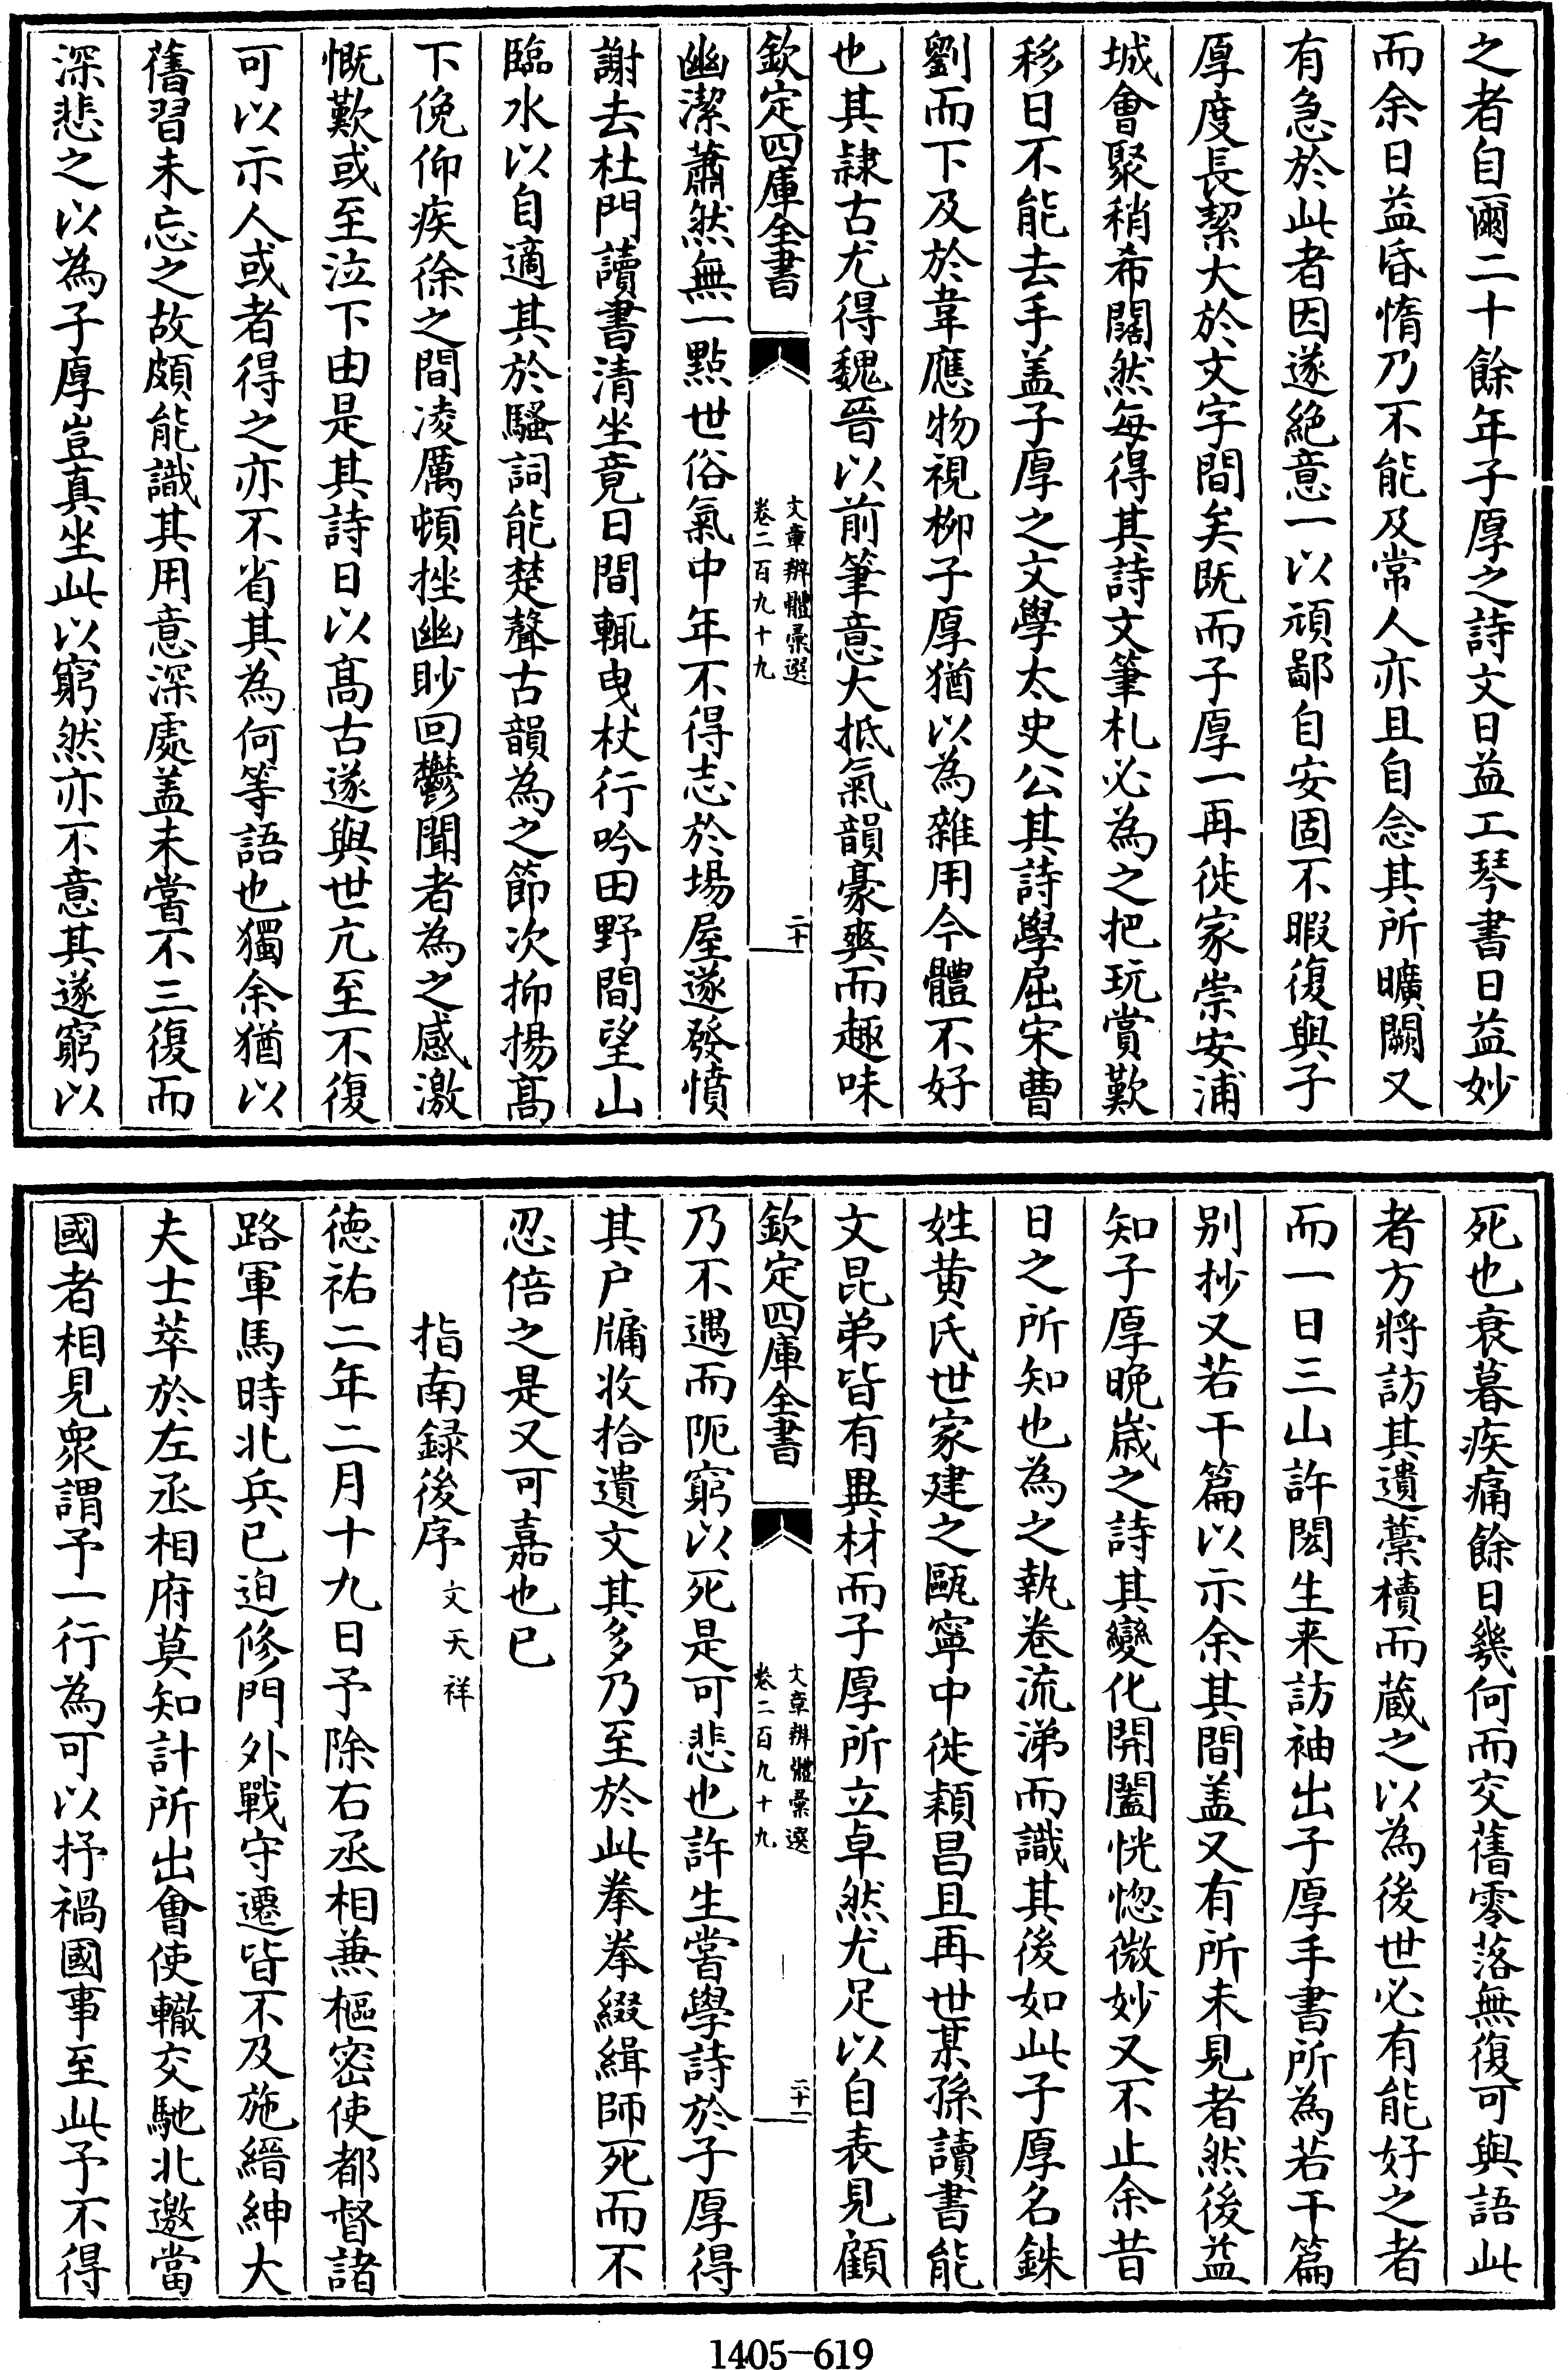 之者自爾二十餘年子厚之詩文日益工琴書日益妙
而余日益昏惰乃不能及常人亦且自念其所曠闕又
有急於此者因遂絶意一以頑鄙自安固不暇復與子
厚度長絜大於文字間矣既而子厚一再徙家崇安浦
城會聚稍希闊然每得其詩文筆札必為之把玩賞歎
移日不能去手盖子厚之文學太史公其詩學屈宋曹
劉而下及於韋應物視栁子厚猶以為雜用今體不好
也其隷古尤得魏晉以前筆意大抵氣韻豪爽而趣味
欽定四庫全書
文章辨體彚選
卷二百九十九
二十
幽潔蕭然無一點世俗氣中年不得志於場屋遂發憤
謝去杜門讀書清坐竟日間輒曳杖行吟田野間望山
臨水以自適其於騷詞能楚聲古韻為之節次抑揚髙
下俛仰疾徐之間凌厲頓挫幽眇回鬱聞者為之感激
慨歎或至泣下由是其詩日以髙古遂與世亢至不復
可以示人或者得之亦不省其為何等語也獨余猶以
舊習未忘之故頗能識其用意深處盖未嘗不三復而
深悲之以為子厚豈真坐此以窮然亦不意其遂窮以
死也衰暮疾痛餘日幾何而交舊零落無復可與語此
者方將訪其遺藁櫝而蔵之以為後世必有能好之者
而一日三山許閎生来訪袖出子厚手書所為若干篇
别抄又若干篇以示余其間盖又有所未見者然後益
知子厚晩嵗之詩其變化開闔恍惚微妙又不止余昔
日之所知也為之執卷流涕而識其後如此子厚名銖
姓黄氏世家建之甌寧中徙穎昌且再世某孫讀書能
文昆弟皆有異材而子厚所立卓然尤足以自表見顧
欽定四庫全書
文章辨體彚選
卷二百九十九
二十一
乃不遇而阨窮以死是可悲也許生嘗學詩於子厚得
其户牖收拾遺文其多乃至於此拳拳綴緝師死而不
忍倍之是又可嘉也已
指南録後序 文天祥
德祐二年二月十九日予除右丞相兼樞密使都督諸
路軍馬時北兵已迫修門外戰守遷皆不及施縉紳大
夫士萃於左丞相府莫知計所出會使轍交馳北邀當
國者相見衆謂予一行為可以抒禍國事至此予不得
1405-619